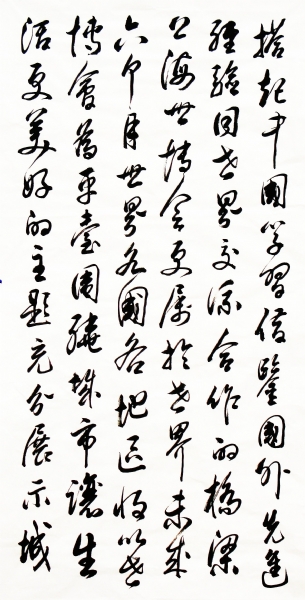 搭起中國学習借鑒國外先進
經驗同世界交流合作的橋梁
上海世博会更属於世界未来
六个月世界各國各地区将以世
博會為平臺圍繞城市讓生
活更美好的主題充分展示城